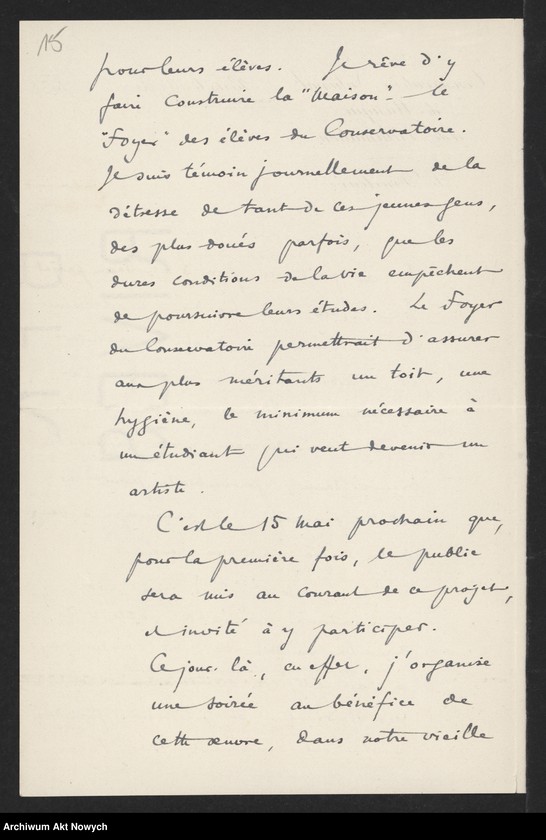 15
pour leurs élèves. Je rêve d'y
faire construire la "Maison" - le
"Foyer" des élèves du Conservatoire.
Je suis témoin journellement de la
détresse de tant de ces jeunes gens,
des plus doués parfois, que les
dures conditions de la vie empêchent
de poursuivre leurs études. Le Foyer
du Conservatoire permettrait d'assurer
aux plus méritants un toit, une
hygiène, le minimum nécessaire à
un étudiant qui veut devenir un
artiste.
C'est le 15 Mai prochain que,
pour la première fois, le public
sera mis au courant de ce projet,
et invité à y participer.
Ce jour-là, en effet, j'organise
une soirée au bénéfice de
cette œuvre, dans notre vieille
Archiwum Akt Nowych